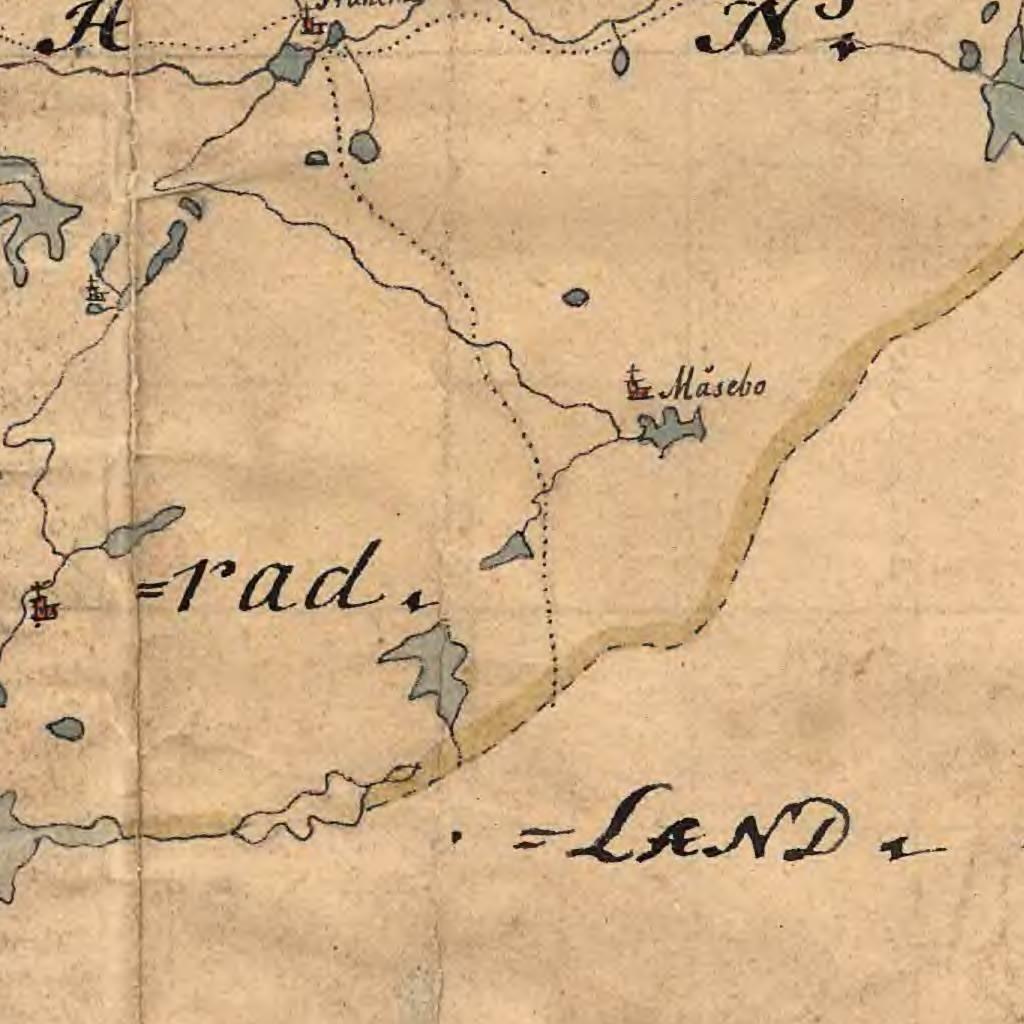 A
N
Måsebo
=rad.
=LAND.